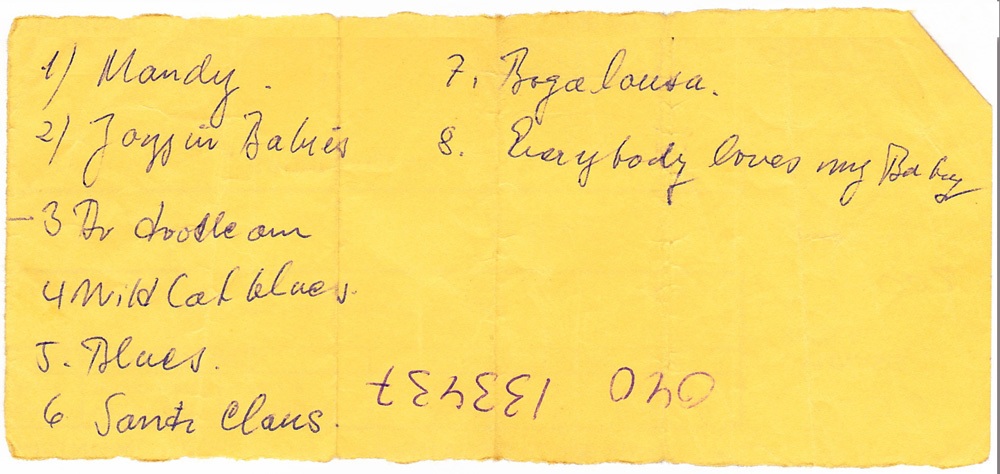 1) Mandy.
2) Jazzin Babies
3
4 Wild Cat blues.
5. Blues.
6 Santa Claus.
7. Bogalousa.
8. Everybody loves my Baby
040 133437